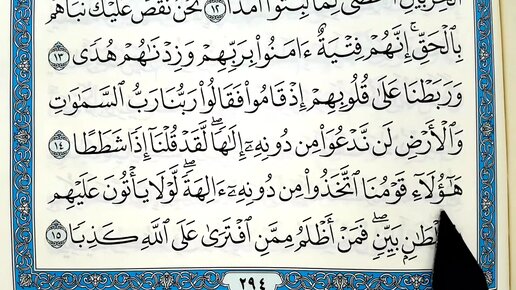 لِمَا لَبِثُوٓا۟ أَمَدًا ١٢ نَّحْنُ نَقُصُّ عَلَيْكَ نَبَأَهُم
بِٱلْحَقِّ ۚ إِنَّهُمْ فِتْيَةٌ ءَامَنُوا۟ بِرَبِّهِمْ وَزِدْنَٰهُمْ هُدًى ١٣
وَرَبَطْنَا عَلَىٰ قُلُوبِهِمْ إِذْ قَامُوا۟ فَقَالُوا۟ رَبُّنَا رَبُّ ٱلسَّمَٰوَٰتِ
وَٱلْأَرْضِ لَن نَّدْعُوَا۟ مِن دُونِهِۦٓ إِلَٰهًا ۖ لَّقَدْ قُلْنَآ إِذًا شَطَطًا ١٤
هَٰٓؤُلَآءِ قَوْمُنَا ٱتَّخَذُوا۟ مِن دُونِهِۦٓ ءَالِهَةً ۖ لَّوْلَا يَأْتُونَ عَلَيْهِم
بَيِّنٍ ۖ فَمَنْ أَظْلَمُ مِمَّنِ ٱفْتَرَىٰ عَلَى ٱللَّهِ كَذِبًا ١٥
٢٩٤